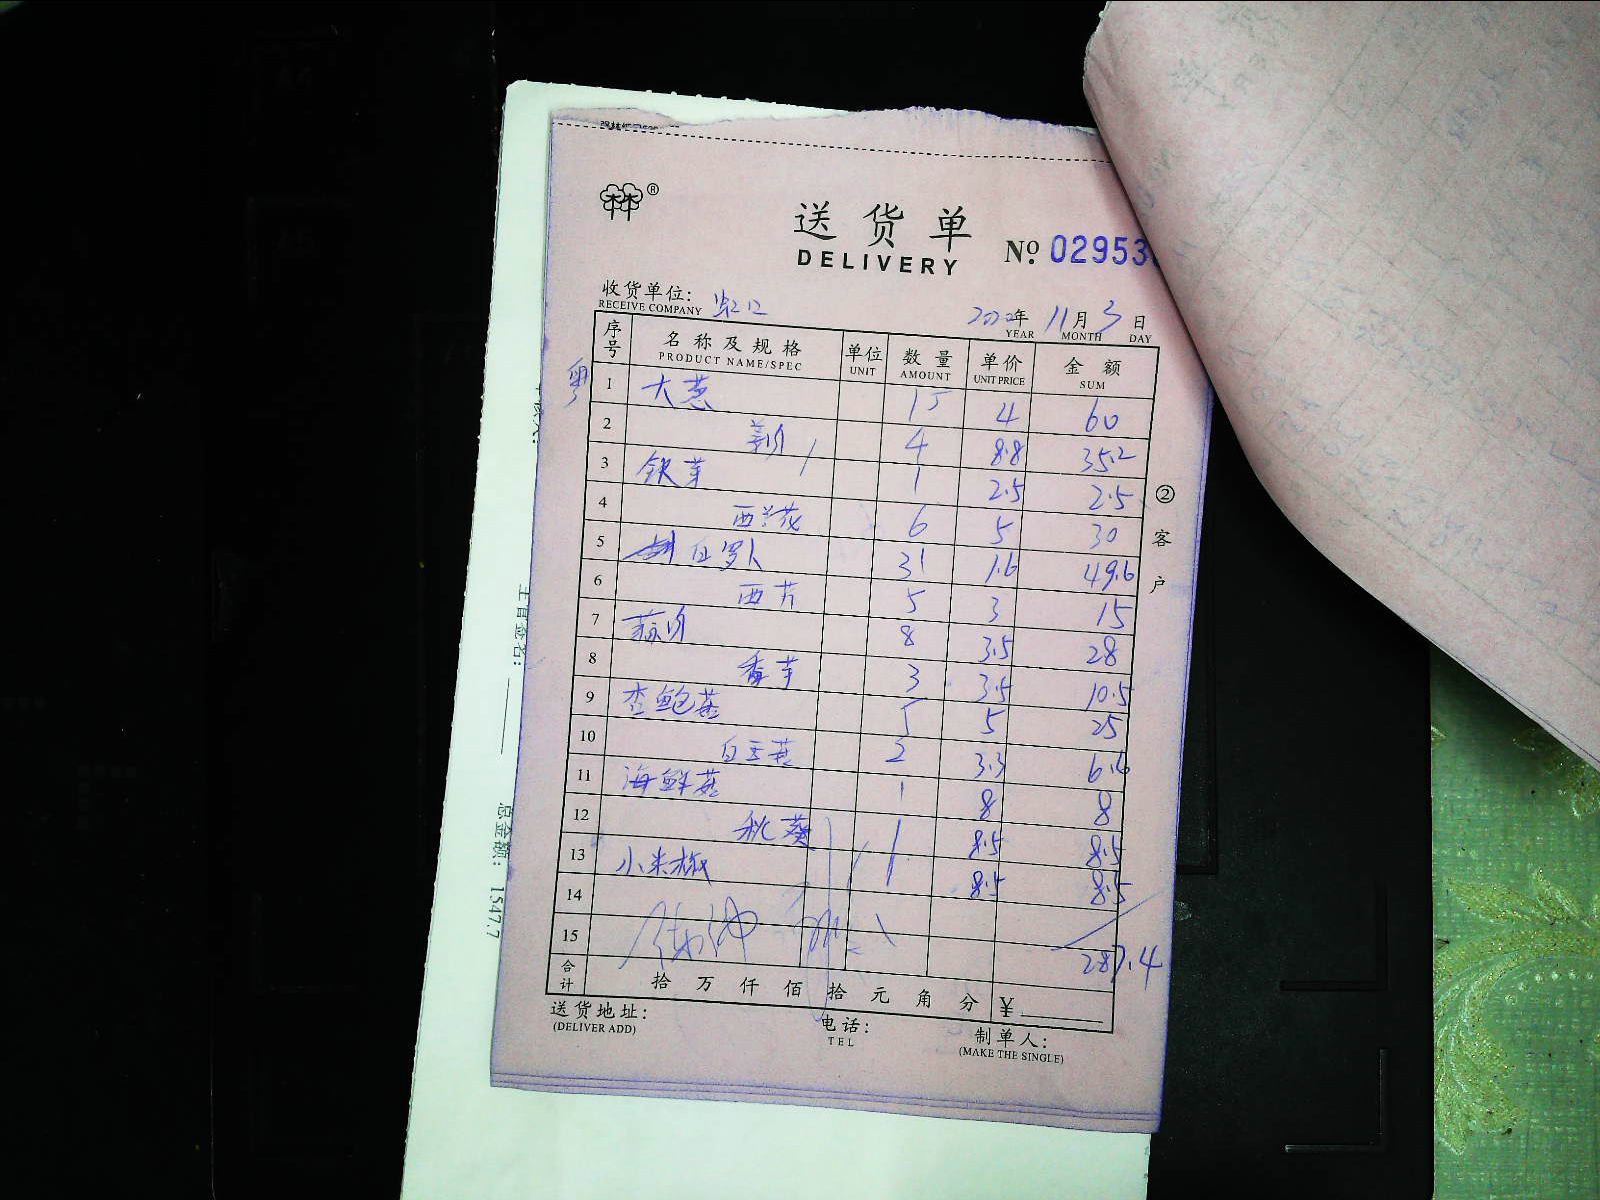 ®
送货单
DELIVERY
No. 02953
收货单位:
RECEIVE COMPANY
2020年 11月 3日
YEAR MONTH DAY
序号 名称及规格 单位 数量 单价 金额
PRODUCT NAME/SPEC UNIT AMOUNT UNIT PRICE SUM
1 大葱 15 4 60
2 姜片 4 8.8 35.2
3 银芽 1 2.5 2.5
4 西兰花 6 5 30
5 白罗卜 31 1.6 49.6
6 西芹 5 3 15
7 蒜片 8 3.5 28
8 香芋 3 3.5 10.5
9 杏鲍菇 5 5 25
10 白玉菇 2 3.3 6.6
11 海鲜菇 1 8 8
12 秋葵 1 8.5 8.5
13 小米椒 1 8.5 8.5
14
15 287.4
合计 拾 万 仟 佰 拾 元 角 分 ¥
送货地址:
(DELIVER ADD)
电话:
TEL
制单人:
(MAKE THE SINGLE)
② 客户
主管签名:
总金额: 1547.7